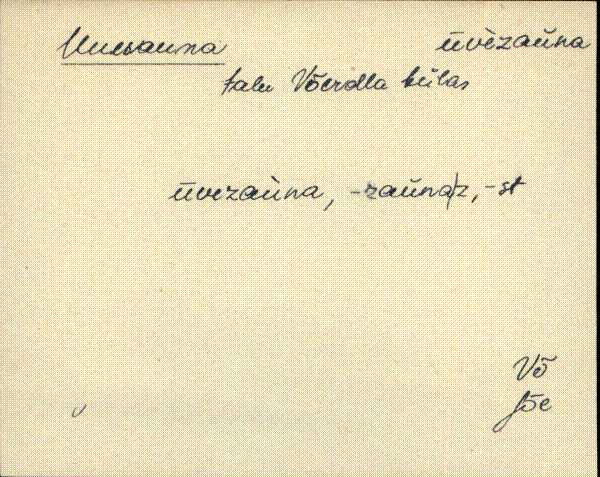 Uuesauna ūvèzaùna
talu Võerdla külas
ūvezaùna, -zaùna|z, -st
Võ
Jõe